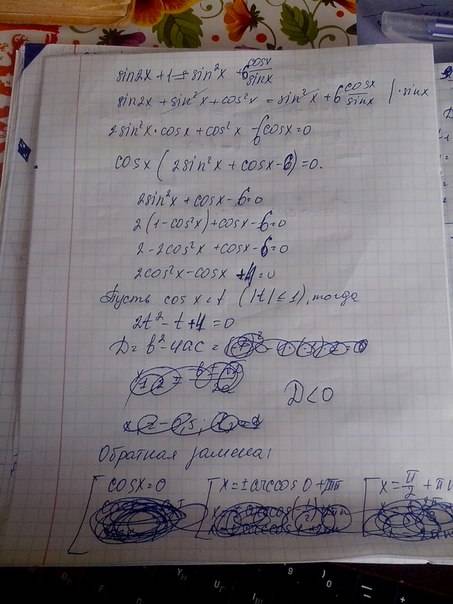 sin2x + 1 = sin²x + 6 cosx/sinx
sin2x + sin²x + cos²x = sin²x + 6 cosx/sinx | · sinx
2sin²x · cosx + cos²x - 6cosx = 0
cosx (2sin²x + cosx - 6) = 0.
2sin²x + cosx - 6 = 0
2(1 - cos²x) + cosx - 6 = 0
2 - 2cos²x + cosx - 6 = 0
2cos²x - cosx + 4 = 0
Пусть cosx = t (|t| ≤ 1), тогда
2t² - t + 4 = 0
D = b² - 4ac =
D < 0
Обратная замена:
[ cosx = 0 [ x = ± arccos 0 + πn [ x = π/2 + πn